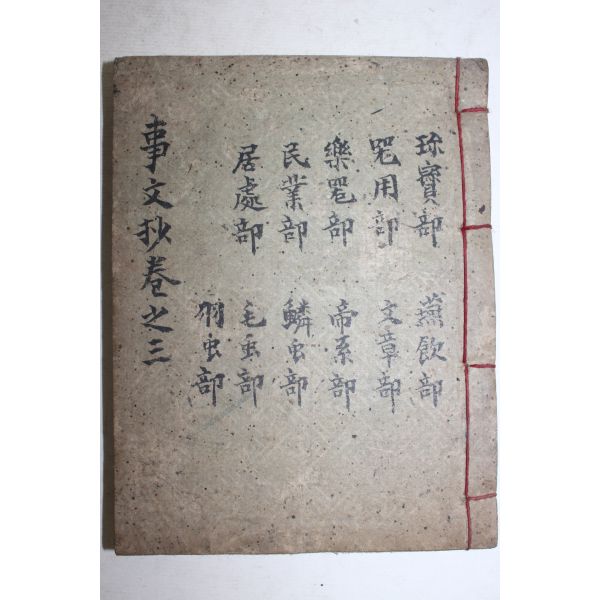 珎寶部 燕飮部
噐用部 文章部
樂噐部 帝系部
民業部 鱗虫部
居處部 毛虫部
羽虫部
事文抄卷之三